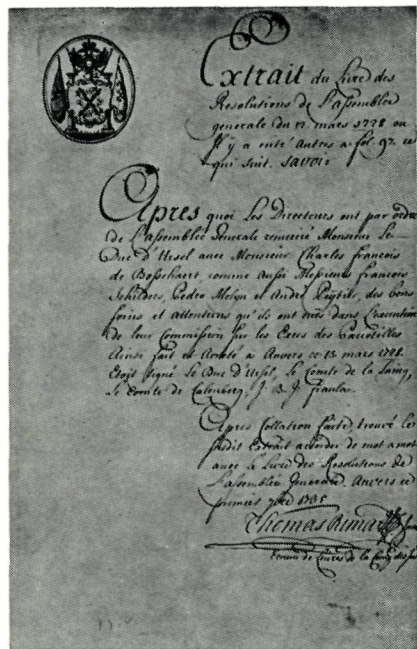 Extrait du Livre des
Resolutions de L'assemblée
generale du 12. mars 1778 ou
Il y a entr' autres a fol 97. ce
qui suit. savoir
Apres quoi Les Directeurs ont par ordre
de L'assemblée Generale remercié Monsieur Le
Duc d'Ursel avec Monsieur Charles francois
de Bosschaert, comme aussi Messieurs francois
Schilders, Pedro Melyn et André Peÿtier, des bons
soins et attentions qu'ils ont eûes dans L'execution
de leur Commission sur les
Ainsi fait et Areté a Anvers ce 13. mars 1778.
Etoit signé Le Duc d'Ursel, Le Comte de Lalaing,
Le Comte de Calenberg, J. B. J. fraula.
Apres Collation faite, trouvé le
susdit Extrait accorder de mot a mot
avec Le Livre des Resolutions de
L'assemblée Generale. Anvers ce
premier 7bre 1785
Thomas
de la